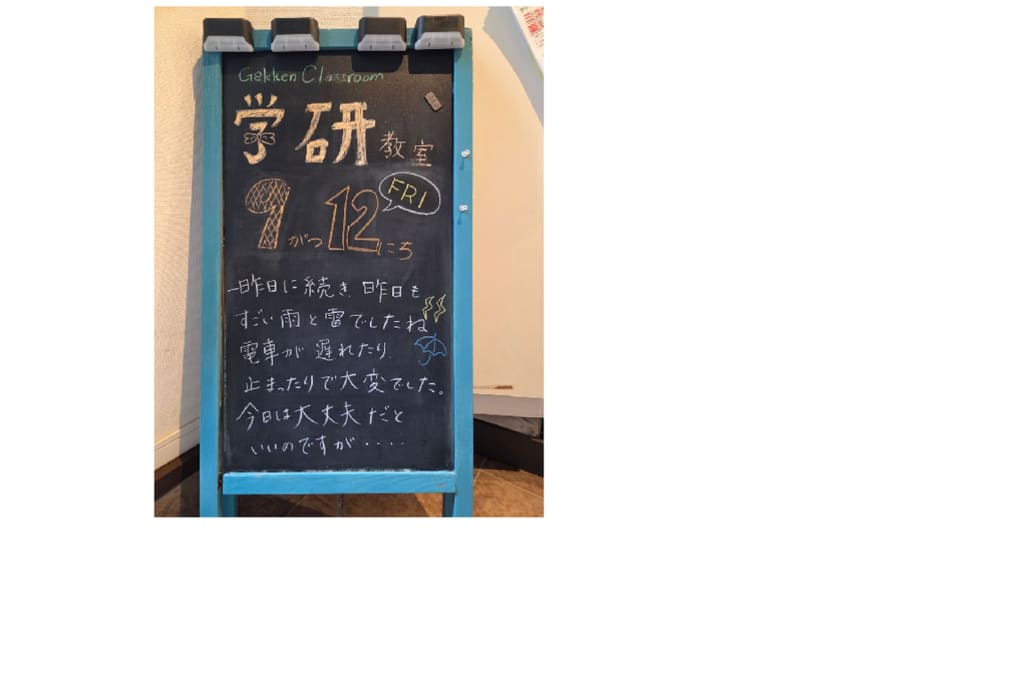 Gakken Classroom
学研教室
9がつ12にち
FRI
一昨日に続き、昨日も
すごい雨と雷でしたね
電車が遅れたり
止まったりで大変でした。
今日は大丈夫だと
いいのですが・・・・